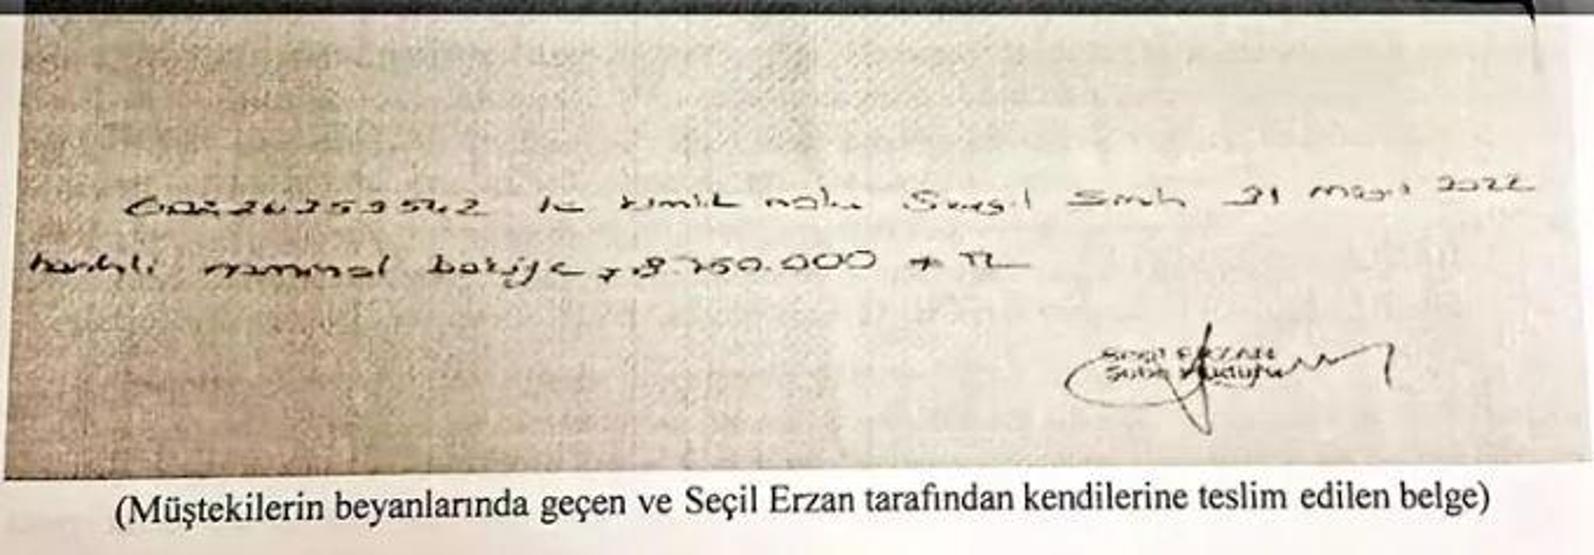 kimlik nolu 31 Mayıs 2022
tarihli nominal bakiye 8.750.000 TL
SEÇİL ERZAN
Şube Müdürü
(Müştekilerin beyanlarında geçen ve Seçil Erzan tarafından kendilerine teslim edilen belge)